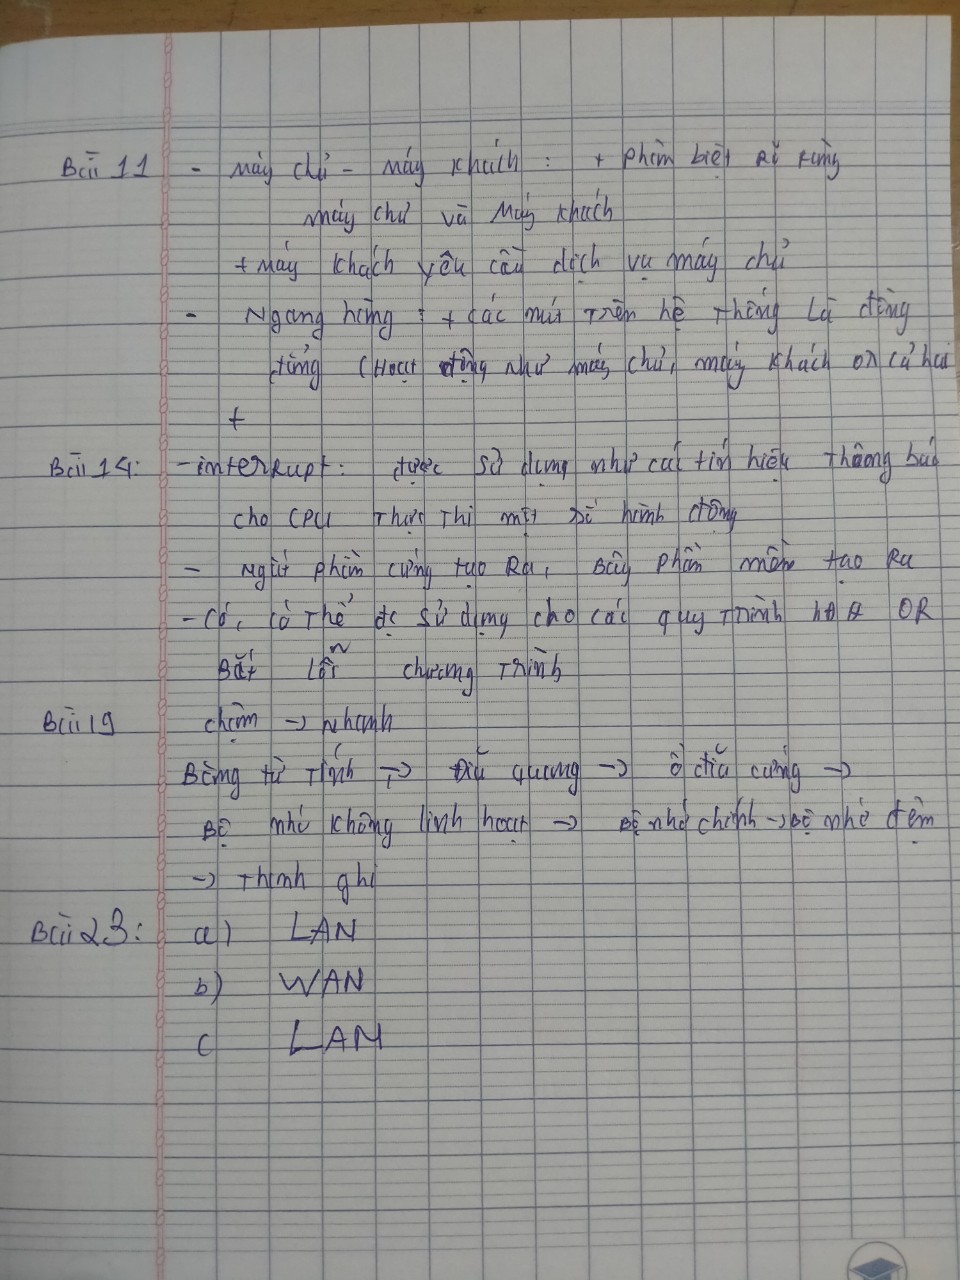 Bài 11 - Máy chủ - máy khách : + phân biệt rõ ràng
máy chủ và Máy khách
+ Máy khách yêu cầu dịch vụ máy chủ
- Ngang hàng : + các nút trên hệ thống là đồng
đẳng (Hoạt động như máy chủ, máy khách or cả hai
+
Bài 14: - interrupt : được sử dụng như các tín hiệu thông báo
cho CPU thực thi một số hành động
- Ngắt phần cứng tạo ra, Bẫy phần mềm tạo ra
- Có, có thể đc sử dụng cho các quy trình OR
Bắt lỗi chương trình
Bài 19 chậm → Nhanh
Băng từ tính → Đĩa quang → ổ đĩa cứng →
Bộ nhớ không linh hoạt → Bộ nhớ chính → Bộ nhớ đệm
→ Thanh ghi
Bài 23: a) LAN
b) WAN
c LAN